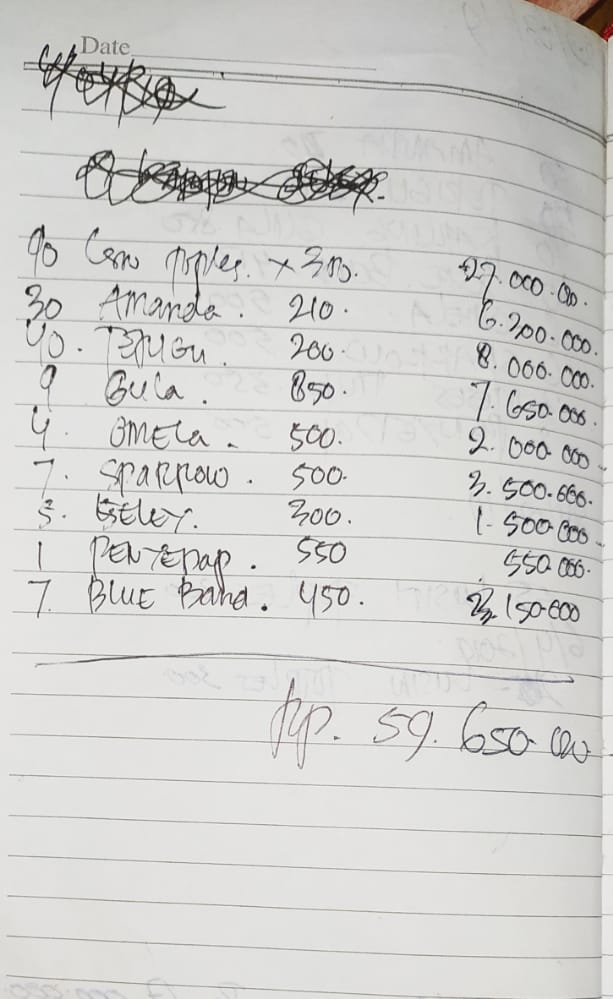 Date
90 toples. x 300. 27.000.000.
30 Amanda. 210. 6.200.000.
40. TERIGU. 200. 8.000.000.
9 Gula. 850. 7.650.000
4. OMELA. 500. 2.000.000
7. SPARROW. 500. 3.500.000.
5. 300. 1.500.000
1 PENYEDAP. 550 550.000.
7. BLUE Band. 450. 3.150.000
Rp. 59.650.000